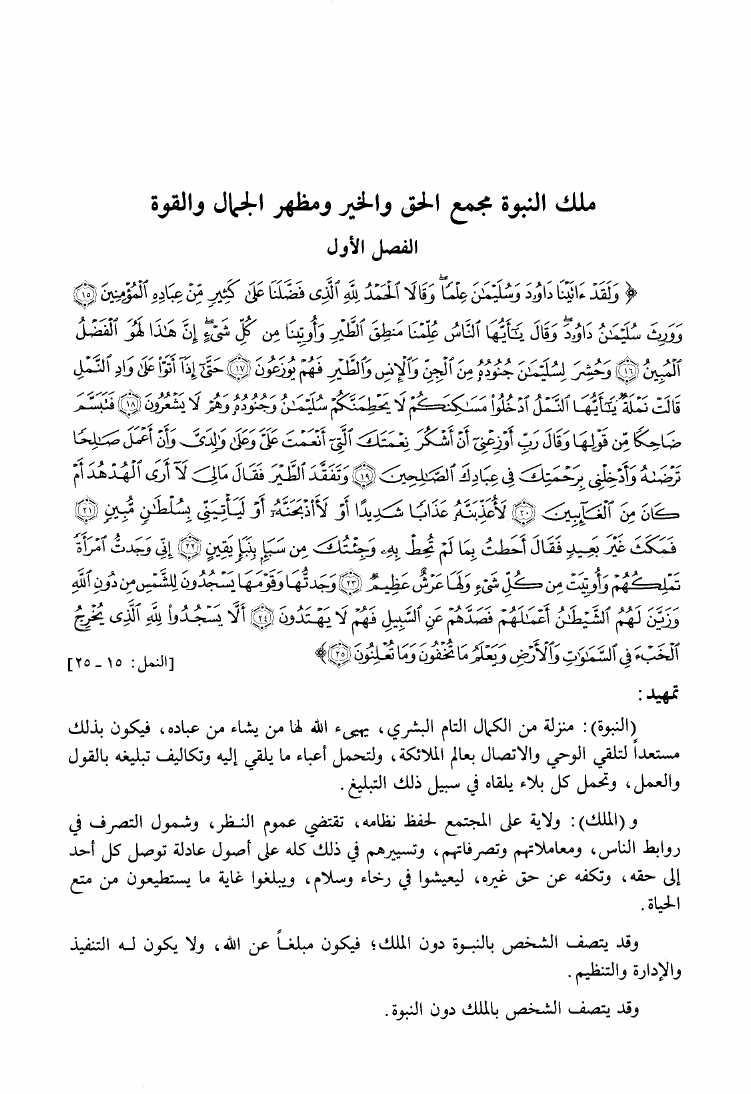 ملك النبوة مجمع الحق والخير ومظهر الجمال والقوة
الفصل الأول
﴿ وَلَقَدْ ءَاتَيْنَا دَاوُۥدَ وَسُلَيْمَٰنَ عِلْمًاۖ وَقَالَا ٱلْحَمْدُ لِلَّهِ ٱلَّذِى فَضَّلَنَا عَلَىٰ كَثِيرٍ مِّنْ عِبَادِهِ ٱلْمُؤْمِنِينَ ﴿١٥﴾
وَوَرِثَ سُلَيْمَٰنُ دَاوُۥدَۖ وَقَالَ يَٰٓأَيُّهَا ٱلنَّاسُ عُلِّمْنَا مَنطِقَ ٱلطَّيْرِ وَأُوتِينَا مِن كُلِّ شَىْءٍۖ إِنَّ هَٰذَا لَهُوَ ٱلْفَضْلُ
ٱلْمُبِينُ ﴿١٦﴾ وَحُشِرَ لِسُلَيْمَٰنَ جُنُودُهُۥ مِنَ ٱلْجِنِّ وَٱلْإِنسِ وَٱلطَّيْرِ فَهُمْ يُوزَعُونَ ﴿١٧﴾ حَتَّىٰٓ إِذَآ أَتَوْا۟ عَلَىٰ وَادِ ٱلنَّمْلِ
قَالَتْ نَمْلَةٌ يَٰٓأَيُّهَا ٱلنَّمْلُ ٱدْخُلُوا۟ مَسَٰكِنَكُمْ لَا يَحْطِمَنَّكُمْ سُلَيْمَٰنُ وَجُنُودُهُۥ وَهُمْ لَا يَشْعُرُونَ ﴿١٨﴾ فَتَبَسَّمَ
ضَاحِكًا مِّن قَوْلِهَا وَقَالَ رَبِّ أَوْزِعْنِىٓ أَنْ أَشْكُرَ نِعْمَتَكَ ٱلَّتِىٓ أَنْعَمْتَ عَلَىَّ وَعَلَىٰ وَٰلِدَىَّ وَأَنْ أَعْمَلَ صَٰلِحًا
تَرْضَىٰهُ وَأَدْخِلْنِى بِرَحْمَتِكَ فِى عِبَادِكَ ٱلصَّٰلِحِينَ ﴿١٩﴾ وَتَفَقَّدَ ٱلطَّيْرَ فَقَالَ مَالِىَ لَآ أَرَى ٱلْهُدْهُدَ أَمْ
كَانَ مِنَ ٱلْغَآئِبِينَ ﴿٢٠﴾ لَأُعَذِّبَنَّهُۥ عَذَابًا شَدِيدًا أَوْ لَأَا۟ذْبَحَنَّهُۥٓ أَوْ لَيَأْتِيَنِّى بِسُلْطَٰنٍ مُّبِينٍ ﴿٢١﴾
فَمَكَثَ غَيْرَ بَعِيدٍ فَقَالَ أَحَطتُ بِمَا لَمْ تُحِطْ بِهِۦ وَجِئْتُكَ مِن سَبَإٍۭ بِنَبَإٍ يَقِينٍ ﴿٢٢﴾ إِنِّى وَجَدتُّ ٱمْرَأَةً
تَمْلِكُهُمْ وَأُوتِيَتْ مِن كُلِّ شَىْءٍ وَلَهَا عَرْشٌ عَظِيمٌ ﴿٢٣﴾ وَجَدتُّهَا وَقَوْمَهَا يَسْجُدُونَ لِلشَّمْسِ مِن دُونِ ٱللَّهِ
وَزَيَّنَ لَهُمُ ٱلشَّيْطَٰنُ أَعْمَٰلَهُمْ فَصَدَّهُمْ عَنِ ٱلسَّبِيلِ فَهُمْ لَا يَهْتَدُونَ ﴿٢٤﴾ أَلَّا يَسْجُدُوا۟ لِلَّهِ ٱلَّذِى يُخْرِجُ
ٱلْخَبْءَ فِى ٱلسَّمَٰوَٰتِ وَٱلْأَرْضِ وَيَعْلَمُ مَا تُخْفُونَ وَمَا تُعْلِنُونَ ﴿٢٥﴾﴾ [النمل: ١٥ ـ ٢٥]
تمهيد:
(النبوة): منزلة من الكمال التام البشري، يهيىء الله لها من يشاء من عباده، فيكون بذلك
مستعداً لتلقي الوحي والاتصال بعالم الملائكة، ولتحمل أعباء ما يلقي إليه وتكاليف تبليغه بالقول
والعمل، وتحمل كل بلاء يلقاه في سبيل ذلك التبليغ.
و (الملك): ولاية على المجتمع لحفظ نظامه، تقتضي عموم النظر، وشمول التصرف في
روابط الناس، ومعاملاتهم وتصرفاتهم، وتسييرهم في ذلك كله على أصول عادلة توصل كل أحد
إلى حقه، وتكفه عن حق غيره، ليعيشوا في رخاء وسلام، ويبلغوا غاية ما يستطيعون من متع
الحياة.
وقد يتصف الشخص بالنبوة دون الملك؛ فيكون مبلغاً عن الله، ولا يكون له التنفيذ
والإدارة والتنظيم.
وقد يتصف الشخص بالملك دون النبوة.